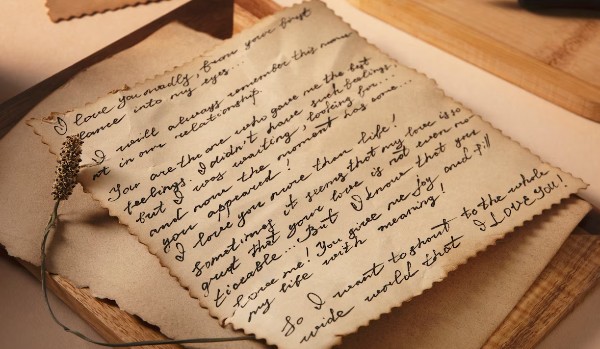 I love you madly, from your first
glance into my eyes...
I will always remember this mom
nt in our relationship.
You are the one who gave me the best
feelings. I didn't have such feelings..
but I was waiting, looking for...
and now the moment has come...
you appeared!
I love you more than life!
Sometimes it seems that my love is so
great that your love is not even no
ticeable... But I know that you
love me! You give me joy and fill
my life with meaning!
So I want to shout to the whole
wide world that I LOVE YOU!